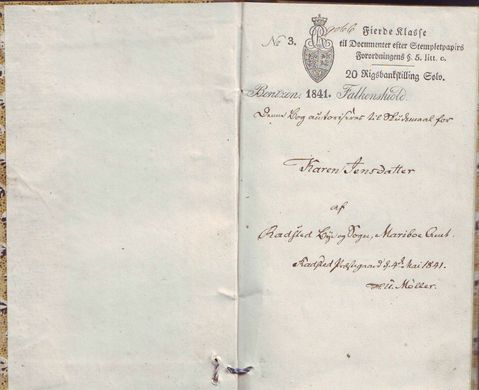 No 3.
Fierde Klasse
til Documenter efter Stempletpapirs
Forordningens §. 5. litt. c.
20 Rigsbankskilling Solv.
Bentzen. 1841. Falkenskiold.
Denne Bog autoriseres til Skudsmaal for
Karen Jensdatter
af
Radsted Bye og Sogn, Mariboe Amt.
Radsted Præstegaard d. 4de Mai 1841.
Möller.